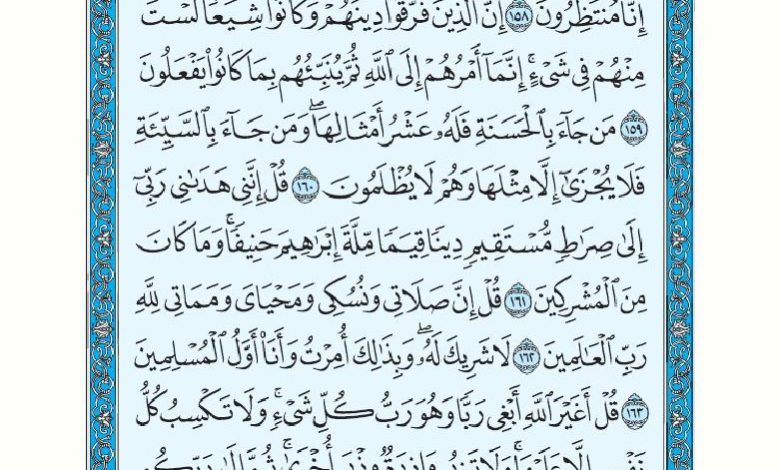 إِنَّا مُنتَظِرُونَ ١٥٨ إِنَّ ٱلَّذِينَ فَرَّقُوا۟ دِينَهُمْ وَكَانُوا۟ شِيَعًا لَّسْتَ
مِنْهُمْ فِى شَىْءٍ ۚ إِنَّمَآ أَمْرُهُمْ إِلَى ٱللَّهِ ثُمَّ يُنَبِّئُهُم بِمَا كَانُوا۟ يَفْعَلُونَ
١٥٩ مَن جَآءَ بِٱلْحَسَنَةِ فَلَهُۥ عَشْرُ أَمْثَالِهَا ۖ وَمَن جَآءَ بِٱلسَّيِّئَةِ
فَلَا يُجْزَىٰٓ إِلَّا مِثْلَهَا وَهُمْ لَا يُظْلَمُونَ ١٦٠ قُلْ إِنَّنِى هَدَىٰنِى رَبِّىٓ
إِلَىٰ صِرَٰطٍ مُّسْتَقِيمٍ دِينًا قِيَمًا مِّلَّةَ إِبْرَٰهِيمَ حَنِيفًا ۚ وَمَا كَانَ
مِنَ ٱلْمُشْرِكِينَ ١٦١ قُلْ إِنَّ صَلَاتِى وَنُسُكِى وَمَحْيَاىَ وَمَمَاتِى لِلَّهِ
رَبِّ ٱلْعَٰلَمِينَ ١٦٢ لَا شَرِيكَ لَهُۥ ۖ وَبِذَٰلِكَ أُمِرْتُ وَأَنَا۠ أَوَّلُ ٱلْمُسْلِمِينَ
١٦٣ قُلْ أَغَيْرَ ٱللَّهِ أَبْغِى رَبًّا وَهُوَ رَبُّ كُلِّ شَىْءٍ ۚ وَلَا تَكْسِبُ كُلُّ
نَفْسٍ إِلَّا عَلَيْهَا ۚ وَلَا تَزِرُ وَازِرَةٌ وِزْرَ أُخْرَىٰ ۚ ثُمَّ إِلَىٰ رَبِّكُم